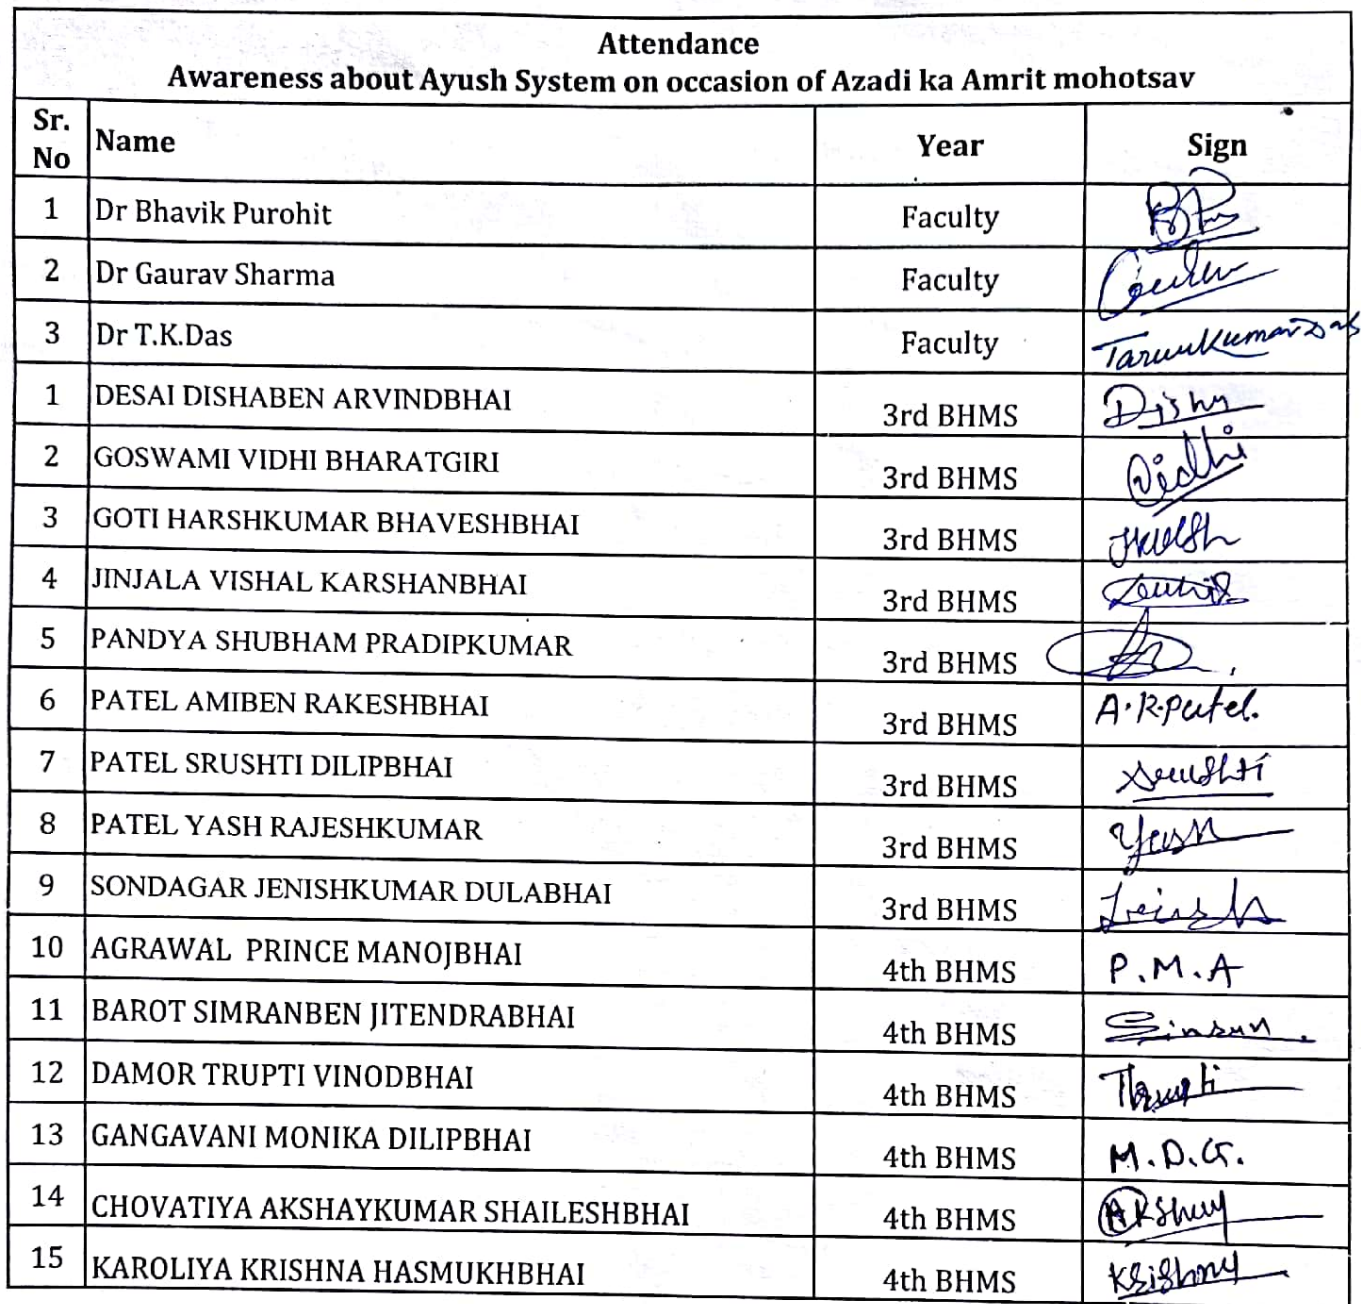 Attendance
Awareness about Ayush System on occasion of Azadi ka Amrit mohotsav
Sr. No Name Year Sign
1 Dr Bhavik Purohit Faculty
2 Dr Gaurav Sharma Faculty
3 Dr T.K.Das Faculty Tarunkumar Das
1 DESAI DISHABEN ARVINDBHAI 3rd BHMS Disha
2 GOSWAMI VIDHI BHARATGIRI 3rd BHMS Vidhi
3 GOTI HARSHKUMAR BHAVESHBHAI 3rd BHMS
4 JINJALA VISHAL KARSHANBHAI 3rd BHMS
5 PANDYA SHUBHAM PRADIPKUMAR 3rd BHMS
6 PATEL AMIBEN RAKESHBHAI 3rd BHMS A.R.Patel.
7 PATEL SRUSHTI DILIPBHAI 3rd BHMS Srushti
8 PATEL YASH RAJESHKUMAR 3rd BHMS Yash
9 SONDAGAR JENISHKUMAR DULABHAI 3rd BHMS
10 AGRAWAL PRINCE MANOJBHAI 4th BHMS P.M.A
11 BAROT SIMRANBEN JITENDRABHAI 4th BHMS
12 DAMOR TRUPTI VINODBHAI 4th BHMS
13 GANGAVANI MONIKA DILIPBHAI 4th BHMS M.D.G.
14 CHOVATIYA AKSHAYKUMAR SHAILESHBHAI 4th BHMS Akshay
15 KAROLIYA KRISHNA HASMUKHBHAI 4th BHMS